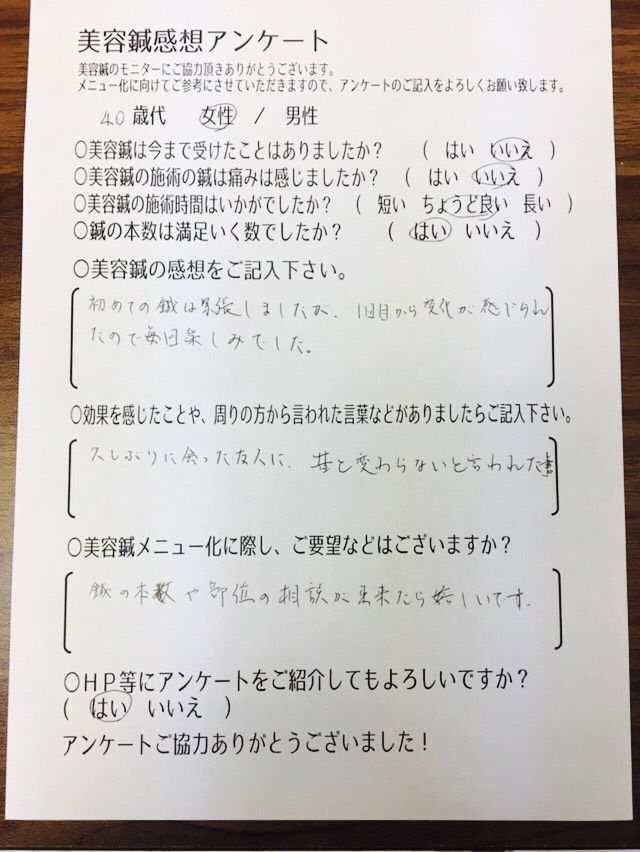 美容鍼感想アンケート
美容鍼のモニターにご協力頂きありがとうございます。
メニュー化に向けてご参考にさせていただきますので、アンケートのご記入をよろしくお願い致します。
40 歳代 女性 / 男性
〇美容鍼は今まで受けたことはありましたか? ( はい いいえ )
〇美容鍼の施術の鍼は痛みは感じましたか? ( はい いいえ )
〇美容鍼の施術時間はいかがでしたか? ( 短い ちょうど良い 長い )
〇鍼の本数は満足いく数でしたか? ( はい いいえ )
〇美容鍼の感想をご記入下さい。
初めての鍼は緊張しましたが、1回目から変化が感じられ
たので毎回楽しみでした。
〇効果を感じたことや、周りの方から言われた言葉などがありましたらご記入下さい。
久しぶりに会った友人に、昔と変わらないと言われた事
〇美容鍼メニュー化に際し、ご要望などはございますか?
鍼の本数や部位の相談が出来たら嬉しいです。
〇HP等にアンケートをご紹介してもよろしいですか?
( はい いいえ )
アンケートご協力ありがとうございました!